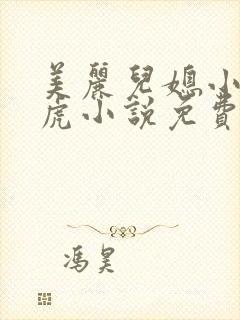 美麗兒媳小
虎小說免費
馮昊